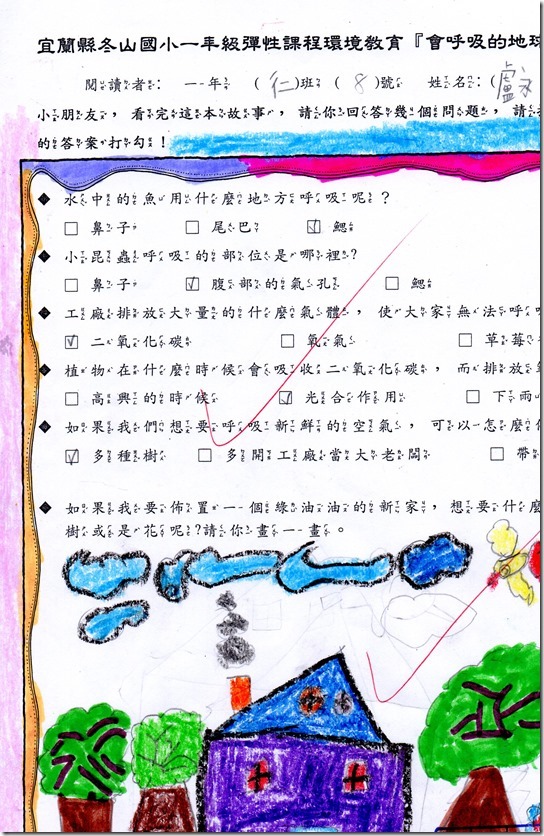 宜蘭縣冬山國小一年級彈性課程環境教育『會呼吸的地球
閱讀者： 一年 (仁)班 (8)號 姓名：(盧
小朋友，看完這本故事，請你回答幾個問題，請
的答案打勾！
◆ 水中的魚用什麼地方呼吸呢？
□ 鼻子 □ 尾巴 ☑ 鰓
◆ 小昆蟲呼吸的部位是哪裡？
□ 鼻子 ☑ 腹部的氣孔 □ 鰓
◆ 工廠排放大量的什麼氣體，使大家無法呼
☑ 二氧化碳 □ 氧氣 □ 草莓
◆ 植物在什麼時候會吸收二氧化碳，而排放
□ 高興的時候 ☑ 光合作用 □ 下雨
◆ 如果我們想要呼吸新鮮的空氣，可以怎麼
☑ 多種樹 □ 多開工廠當大老闆 □ 帶
◆ 如果我要佈置一個綠油油的新家，想要什
樹或是花呢？請你畫一畫。